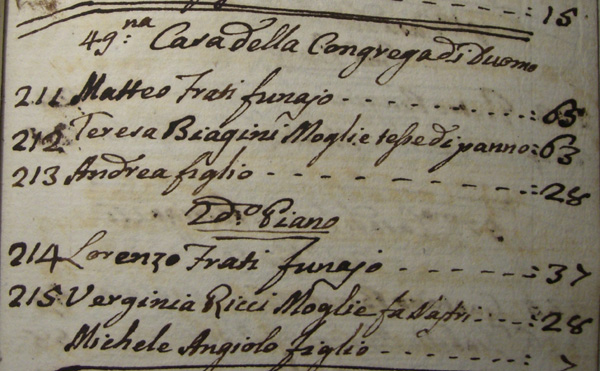 15
49:na Casa della Congrega di Duomo
211 Matteo Frati funajo - - - - - - - : 65
212 Teresa Biagini Moglie tesse di panno: 63
213 Andrea figlio - - - - - - - : 28
2do. Piano
214 Lorenzo Frati funajo - - - - - : 37
215 Verginia Ricci Moglie fa - - - : 28
Michele Angiolo figlio - - - - - : 7